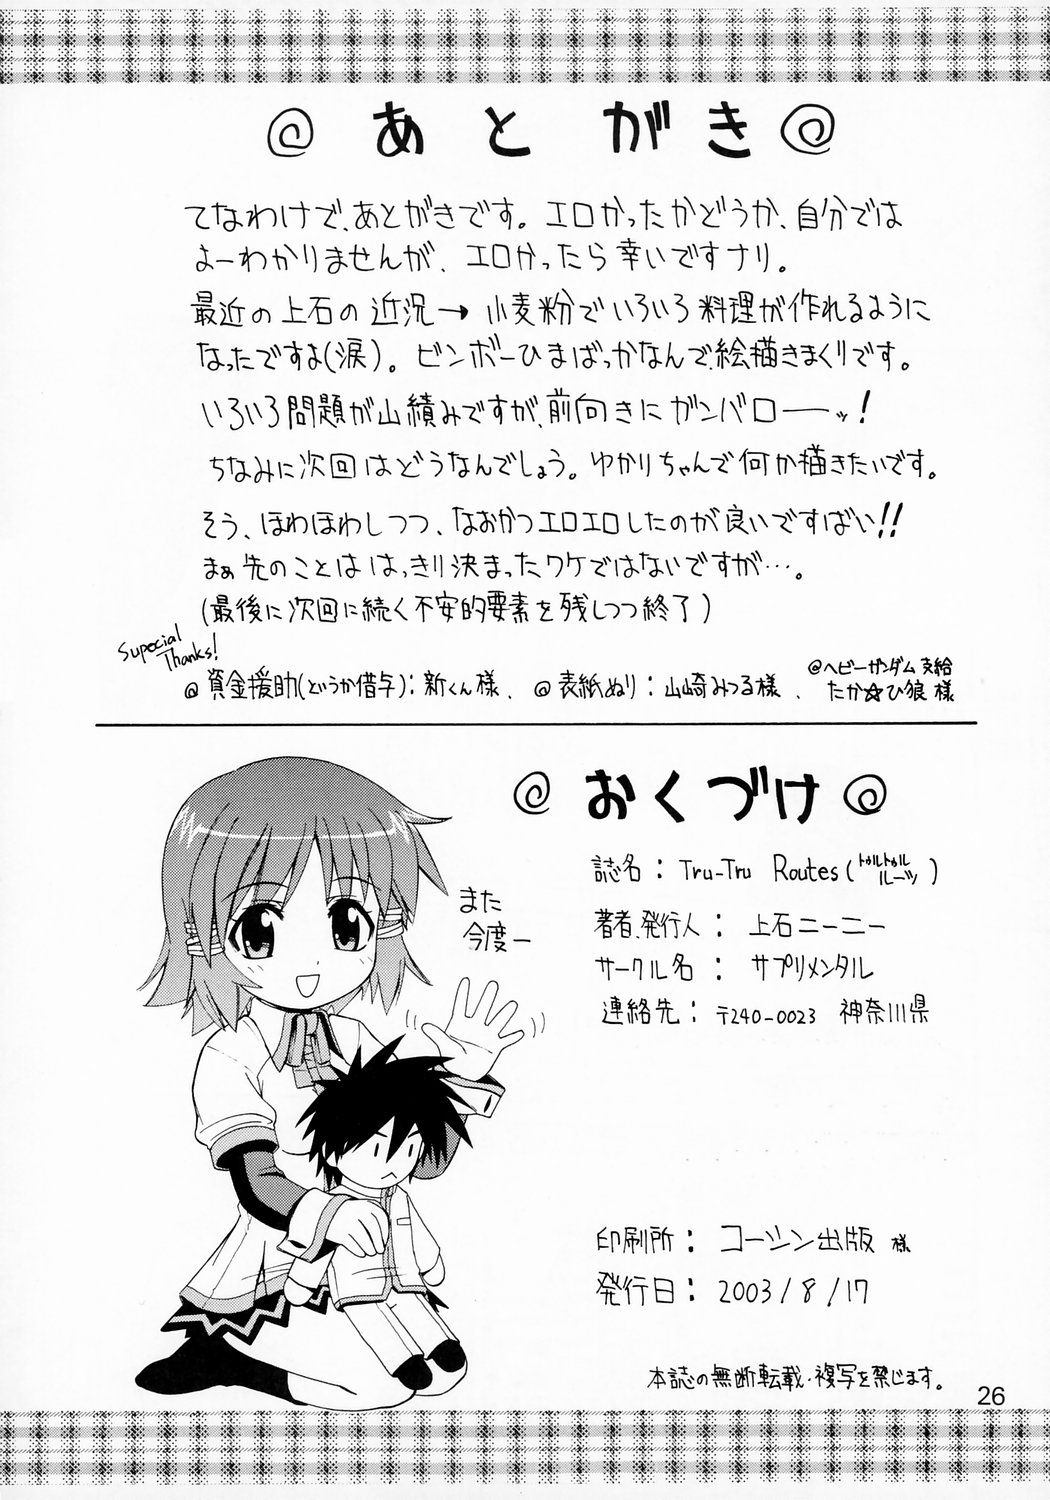 あとがき
てなわけで、あとがきです。エロかったかどうか、自分では
よーわかりませんが、エロかったら幸いですナリ。
最近の上石の近況→小麦粉でいろいろ料理が作れるように
なったですよ(涙)。ビンボーひまばっかなんで、絵描きまくりです。
いろいろ問題が山積みですが、前向きにガンバローーッ!
ちなみに次回はどうなんでしょう。ゆかりちゃんで何か描きたいです。
そう、ほわほわしつつ、なおかつエロエロしたのが良いですばい!!
まぁ先のことははっきり決まったワケではないですが…。
(最後に次回に続く不安的要素を残しつつ終了)
Supecial
Thanks!
@資金援助(というか借与):新くん様、@表紙ぬり:山崎みつる様、
@ヘビーガンダム支給
たか☆ひ狼様
おくづけ
誌名:Tru-Tru Routes(トゥルトゥルルーツ)
著者、発行人:上石ニーニー
サークル名:サプリメンタル
連絡先:〒240-0023 神奈川県
また
今度ー
印刷所:コーシン出版 様
発行日:2003/8/17
本誌の無断転載・複写を禁じます。
26